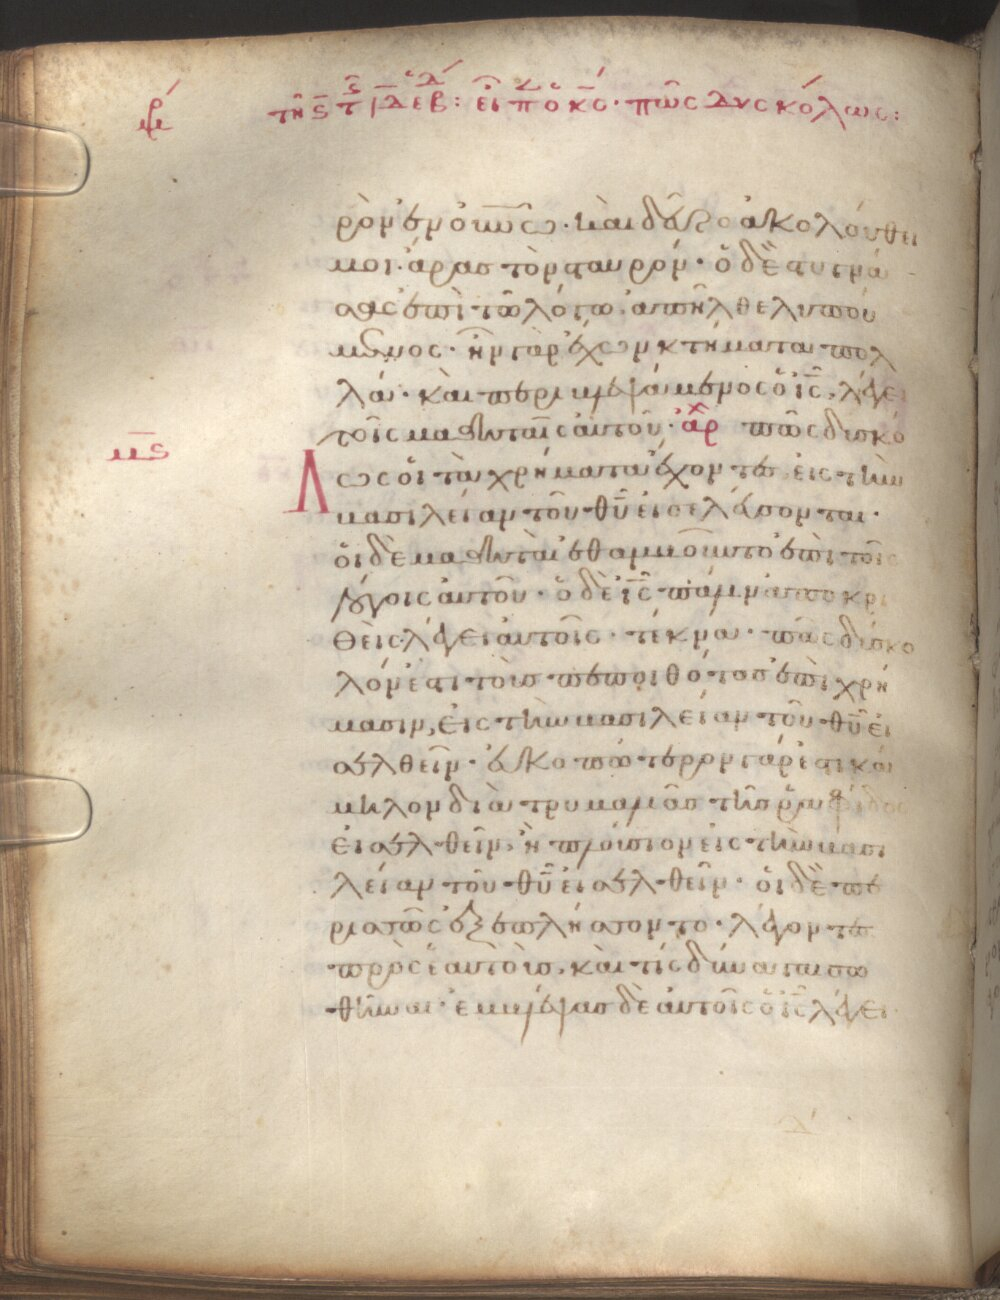 ρὸν ἐν οὐ̅ν̅ω̅· καὶ δεῦρο ἀκολούθει
μοι· ἄρας τὸν σταυρόν· ὁ δὲ στυγνά
σας ἐπὶ τῶ λόγω, ἀπῆλθε λυπού
μενος· ἦν γὰρ ἔχων κτήματα πολ
λά· καὶ περιβλεψάμενος ὁ ι̅ς̅, λέγει
τοῖς μαθηταῖς αὐτοῦ· ἀρ πῶς δυσκό
λως οἱ τὰ χρήματα ἔχοντες, εἰς τὴν
βασιλείαν τοῦ θ̅υ̅ εἰσελεύσονται·
οἱ δὲ μαθηταὶ ἐθαμβοῦντο ἐπὶ τοῖς
λόγοις αὐτοῦ· ὁ δὲ ι̅ς̅ πάλιν ἀποκρι
θεὶς λέγει αὐτοῖς· τέκνα· πῶς δύσκο
λόν ἐστι τοὺς πεποιθότας ἐπὶ χρή
μασιν, εἰς τὴν βασιλείαν τοῦ θ̅υ̅ εἰ
σελθεῖν· εὐκοπώτερον γάρ ἐστι κά
μηλον διὰ τρυμαλιᾶς τῆς ῥαφίδος
εἰσελθεῖν, ἢ πλούσιον εἰς τὴν βασι
λείαν τοῦ θ̅υ̅ εἰσελθεῖν· οἱ δὲ πε
ρισσῶς ἐξεπλήσσοντο· λέγοντες
πρὸς ἑαυτούς, καὶ τίς δύναται σω
θῆναι· ἐμβλέψας δὲ αὐτοῖς ὁ ι̅ς̅ λέγει